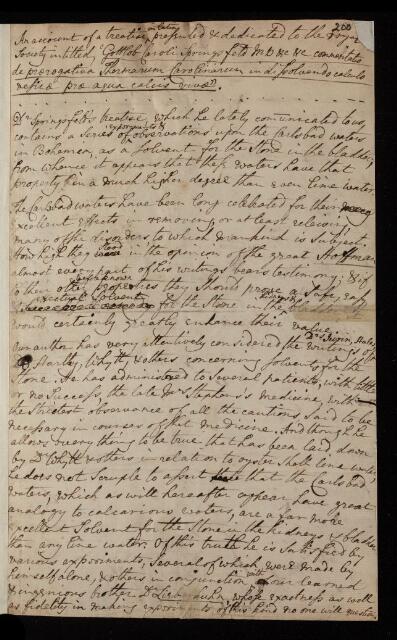 200
An account of a treatise, lately presented & dedicated to the Royal
Society intitled, Gottlob Caroli Springsfeld M.D. &c &c commentatio
de prærogativa Thermarum Carolinarum in dissolvendo calculo
vesicæ præ aqua calcis vivæ.
Dr Springsfeld's treatise, which he lately communicated to us,
contains a Series of experiments & observations upon the Carlsbad waters
in Bohemia, as a Solvent for the Stone in the bladder;
from whence it appears that these waters have that
property in a much higher degree than even lime water.
The Carlsbad waters have been long celebrated for their
excellent effects in removing or at least relieving
many of the disorders to which mankind is Subject.
How high they stood in the opinion of the great Hoffman
almost every part of his writings bears testimony; & if
to their other well known properties they should prove a safe, easy
& effectual Solvent for the Stone in the bladder, it
would certainly greatly enhance their value.
Our author has very attentively considered the writings of Drs Jurin, Hales,
Hartley, Whytt, & others concerning Solvents for the
Stone. He has administered to Several patients, with little
or no Success, the late Mrs Stephens's medicine, with
the Strictest observance of all the cautions said to be
necessary in courses of that medicine. And though he
allows every thing to be true that has been laid down
by Dr Whytt & others in relation to oyster Shell lime water,
he does not Scruple to assert that the Carlsbad
waters, which as will hereafter appear have great
analogy to calcarious waters, are a far more
excellent Solvent for the Stone in the kidneys & bladder
than any lime water. Of this truth he is Satisfied by
various experiments, Several of which were made by
himself alone, & others in conjunction with our learned
& ingenious brother Dr Lieberkuhn, whose exactness as well
as fidelity in making experiments of this kind no one will question.